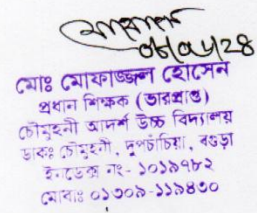 ০৮/০৬/২৪
মোঃ মোফাজ্জল হোসেন
প্রধান শিক্ষক (ভারপ্রাপ্ত)
চৌমুহনী আদর্শ উচ্চ বিদ্যালয়
ডাকঃ চৌমুহনী, দুপচাঁচিয়া, বগুড়া
ইনডেক্স নং- ১০১৯৭৮২
মোবাঃ ০১৩০৯-১১৯৪৩০